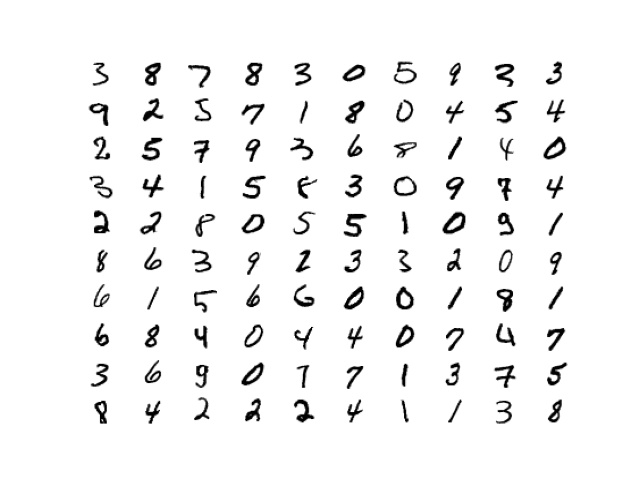 3 8 7 8 3 0 5 9 3 3
9 2 5 7 1 8 0 4 5 4
2 5 7 9 3 6 8 1 4 0
3 4 1 5 8 3 0 9 7 4
2 2 8 0 5 5 1 0 9 1
8 6 3 9 2 3 3 2 0 9
6 1 5 6 6 0 0 1 8 1
6 8 4 0 4 4 0 7 4 7
3 6 9 0 7 7 1 3 7 5
8 4 2 2 2 4 1 1 3 8